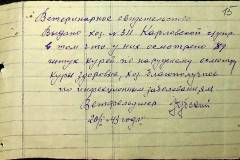 15
Ветеринарное свидетельство
Выдано хоз. № 311 Карловской
в том что у них осмотрено 89
штук курей по наружному осмотру
куры здоровые, хоз. благополучное
по инфекционным заболеваниям
Ветфельдшер
20/ 43 года